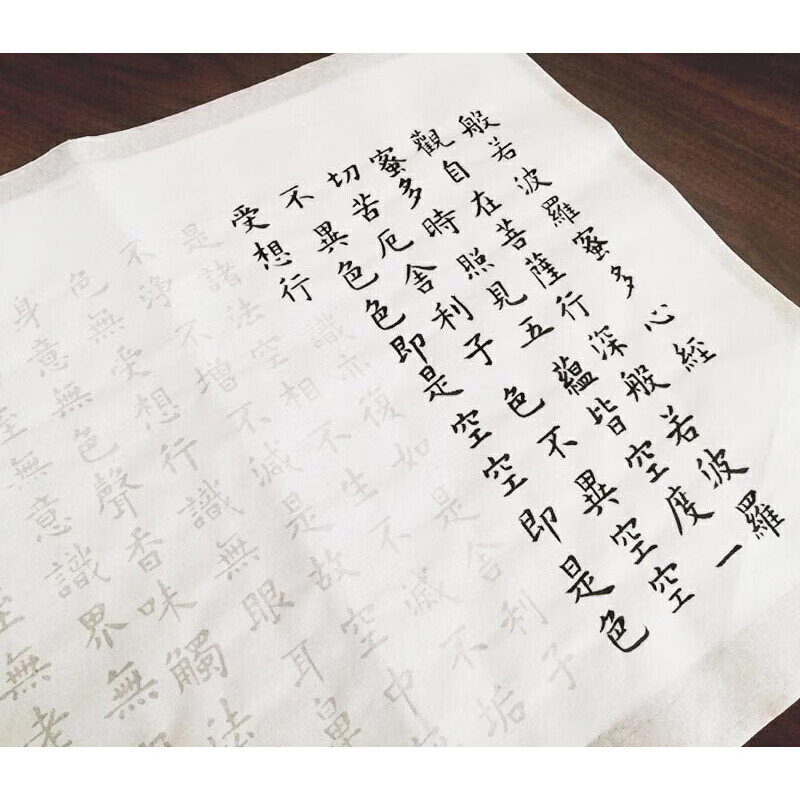 般若波羅蜜多心經
觀自在菩薩行深般若波羅
蜜多時照見五蘊皆空度一
切苦厄舍利子色不異空空
不異色色即是空空即是色
受想行識亦復如是舍利子
是諸法空相不生不滅不垢
不淨不增不減是故空中
色無受想行識無眼耳鼻
身意無色聲香味觸法
至無意識界無
至無老